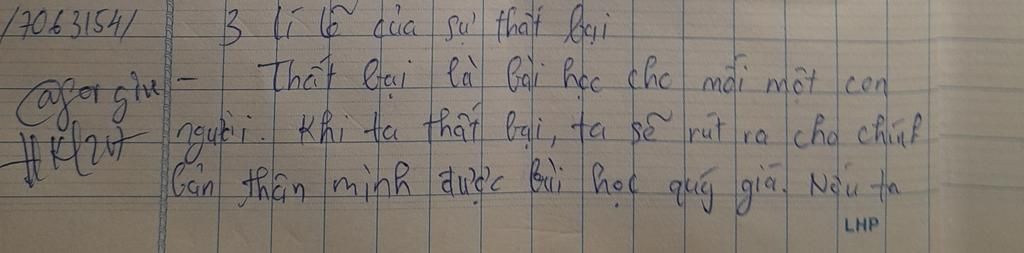 /7063154/ 3 lí lẽ của sự thất bại
- Thất bại là bài học cho mỗi một con
người. Khi ta thất bại, ta sẽ rút ra cho chính
bản thân mình được bài học quý giá. Nếu ta
LHP